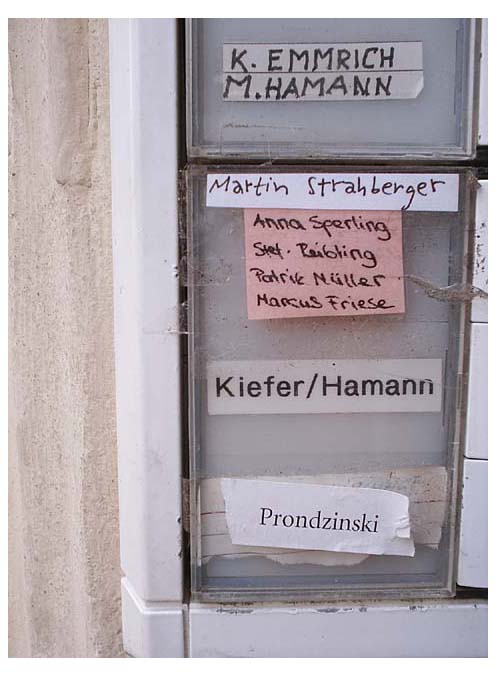 K. EMMRICH
M. HAMANN
Martin Strahberger
Anna Sperling
Stef. Reibling
Patrik Müller
Marcus Friese
Kiefer/Hamann
Prondzinski